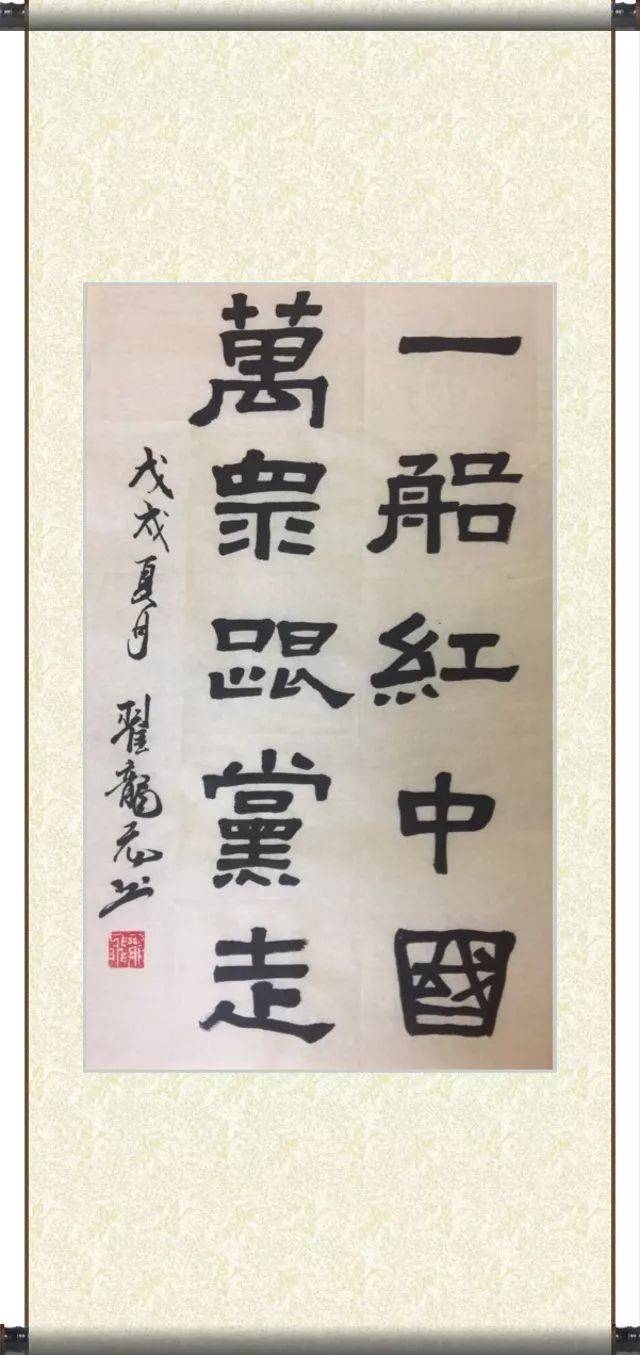 一船紅中國
萬眾跟黨走
戊戌夏月 翟龍志书